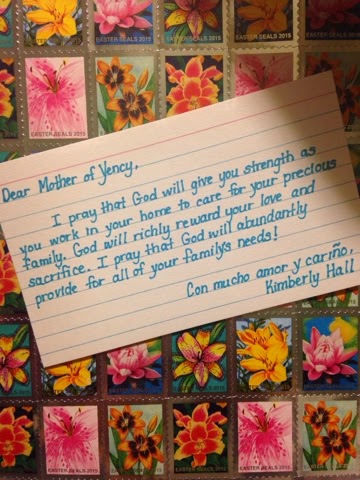 EASTER SEALS 2015
EASTER SEALS 2015
EASTER SEALS 2015
EASTER SEALS 2015
Dear Mother of Yency,
I pray that God will give you strength as
you work in your home to care for your precious
family. God will richly reward your love and
sacrifice. I pray that God will abundantly
provide for all of your family's needs!
Con mucho amor y cariño,
Kimberly Hall
EASTER SEALS 2015
EASTER SEALS 2015
EASTER SEALS 2015
EASTER SEALS 2015